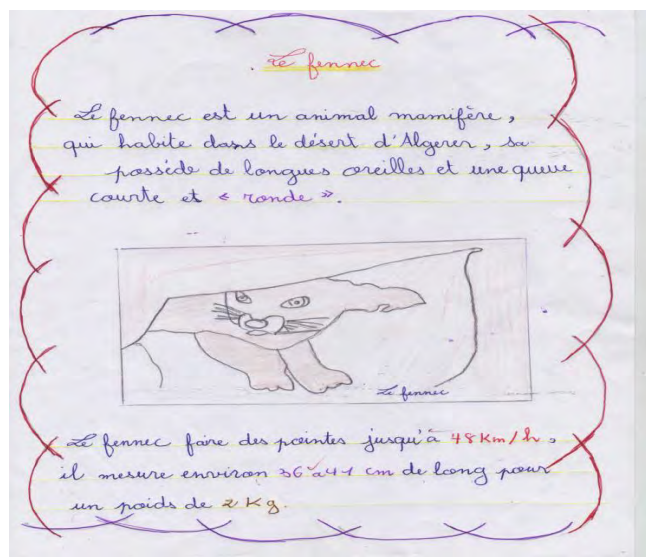 . Le fennec
Le fennec est un animal mamifère,
qui habite dans le désert d'Algerer, sa
posséde de longues oreilles et une queue
courte et « ronde ».
Le fennec
Le fennec faire des pointes jusqu'à 48 Km/h,
il mesure environ 36 à 41 cm de long pour
un poids de 2 Kg.